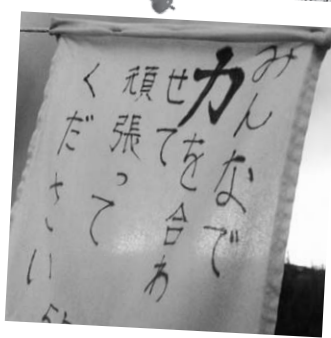 みんなで
力を合わ
せて
頑張って
ください